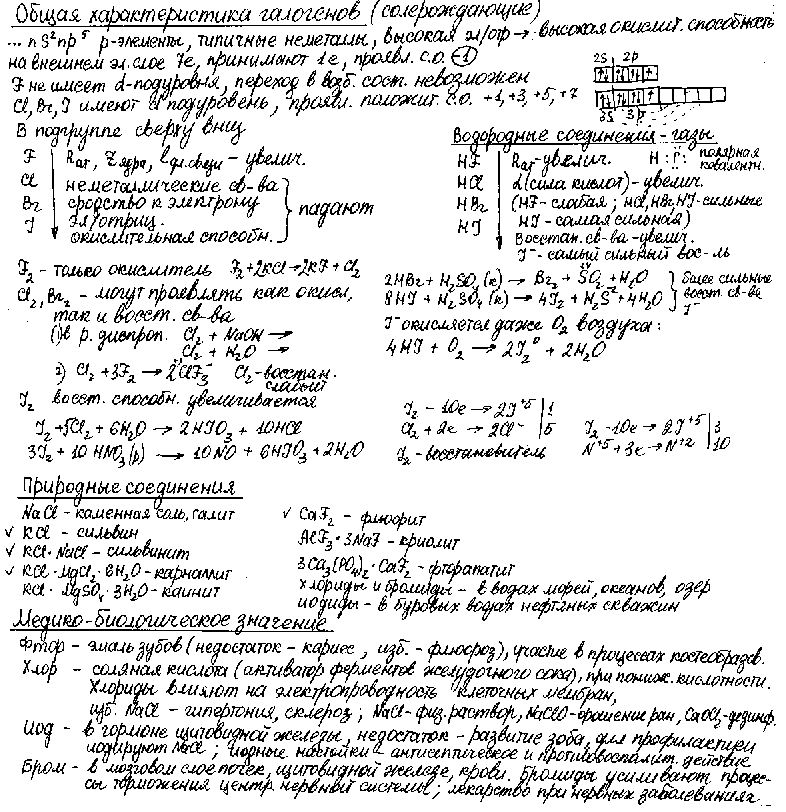 Общая характеристика галогенов (солерождающие)
... ns²np⁵ p-элементы, типичные неметаллы, высокая эл/отр → высокая окислит. способность
на внешнем эл. слое 7e, принимают 1e, проявл. с.о. (-1)
F не имеет d-подуровня, переход в возб. сост. невозможен
Cl, Br, I имеют d подуровень, проявл. положит. с.о. +1, +3, +5, +7
2s 2p
3s 3p
В подгруппе сверху вниз
F Rат, Zядра, lдл.связи - увелич.
Cl неметаллические св-ва
Br сродство к электрону
I эл/отриц.
окислительная способн.
падают
Водородные соединения - газы
HF Rат - увелич. H : F : полярная ковалентн.
HCl α (сила кислот) - увелич.
HBr (HF - слабая; HCl, HBr, HI - сильные
HI HI - самая сильная)
Восстан. св-ва - увелич.
I⁻ - самый сильный вос-ль
F₂ - только окислитель F₂ + 2KCl → 2KF + Cl₂
Cl₂, Br₂ - могут проявлять как окисл,
так и восст. св-ва
1) в р. диспроп. Cl₂ + NaOH →
Cl₂ + H₂O →
2) Cl₂ + 3F₂ → 2ClF₃ Cl₂ - восстан.
слабый
2HBr + H₂SO₄(к) → Br₂ + SO₂ + H₂O
8HI + H₂SO₄(к) → 4I₂ + H₂S⁻² + 4H₂O
более сильные
восст. св-ва
I⁻
I⁻ окисляется даже O₂ воздуха:
4HI + O₂ → 2I₂⁰ + 2H₂O
I₂ восст. способн. увеличивается
I₂ + 5Cl₂ + 6H₂O → 2HIO₃ + 10HCl
3I₂ + 10HNO₃(р) → 10NO + 6HIO₃ + 2H₂O
I₂ - 10e → 2I⁺⁵ | 1
Cl₂ + 2e → 2Cl⁻ | 5
I₂ - восстановитель
I₂ - 10e → 2I⁺⁵ | 3
N⁺⁵ + 3e → N⁺² | 10
Природные соединения
NaCl - каменная соль, галит
✓ KCl - сильвин
✓ KCl · NaCl - сильвинит
✓ KCl · MgCl₂ · 6H₂O - карналлит
KCl · MgSO₄ · 3H₂O - каинит
✓ CaF₂ - флюорит
AlF₃ · 3NaF - криолит
3Ca₃(PO₄)₂ · CaF₂ - фторапатит
Хлориды и бромиды - в водах морей, океанов, озер
иодиды - в буровых водах нефтяных скважин
Медико-биологическое значение
Фтор - эмаль зубов (недостаток - кариес, изб. - флюороз), участие в процессах костеобразов.
Хлор - соляная кислота (активатор ферментов желудочного сока), при пониж. кислотности.
Хлориды влияют на электропроводность клеточных мембран,
изб. NaCl - гипертония, склероз; NaCl - физ. раствор, NaClO - орошение ран, CaOCl₂ - дезинф.
Иод - в гормоне щитовидной железы, недостаток - развитие зоба, для профилактики
иодируют NaCl; иодные настойки - антисептическое и противовоспалит. действие
Бром - в мозговом слое почек, щитовидной железе, крови. Бромиды усиливают процес-
сы торможения центр. нервной системы; лекарство при нервных заболеваниях.